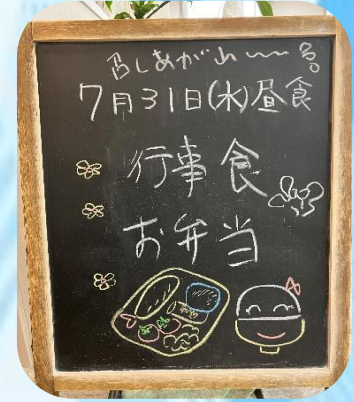 召しあがれ〜〜
7月31日(水)昼食
行事食
お弁当